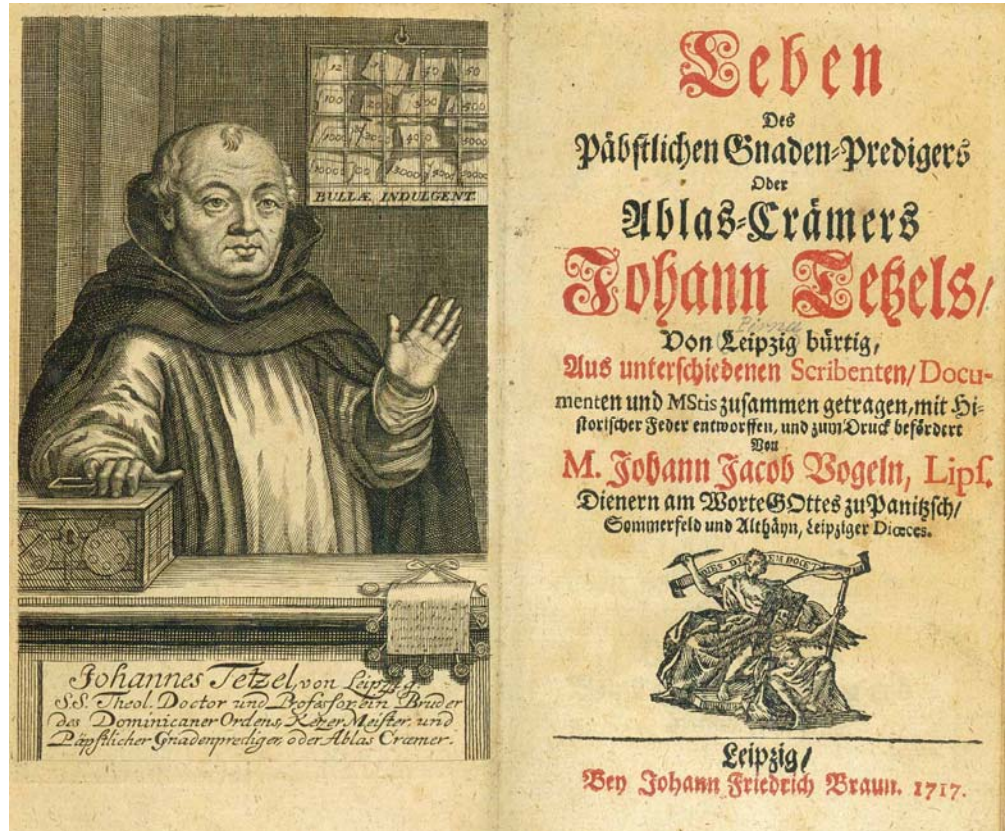 12
50
50
100
BULLÆ INDULGENT.
Johannes Tetzel, von Leipzig,
S.S. Theol. Doctor und Professor, ein Bruder
des Dominicaner Ordens, Kezer Meister, und
Päpstlicher Gnadenprediger, oder Ablas Cræmer.
Leben
Des
Päbstlichen Gnaden-Predigers
Oder
Ablas-Crämers
Johann Tetzels/
Pirna
Von Leipzig bürtig,
Aus unterschiedenen Scribenten/ Docu-
menten und MStis zusammen getragen, mit Hi-
storischer Feder entworffen, und zum Druck befördert
Von
M. Johann Jacob Vogeln, Lips.
Dienern am Worte GOttes zu Panitzsch/
Sommerfeld und Althäyn, Leipziger Diœces.
DIES DIEM DOCET
Leipzig/
Bey Johann Friedrich Braun. 1717.